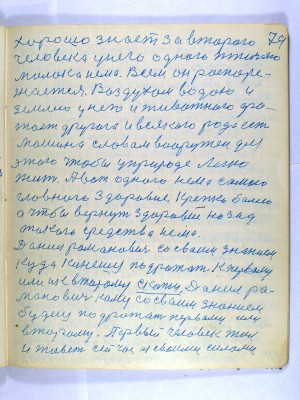 хорошо знает за второго 79
человека у него одного птичьего
молока нема. Всем он распоре-
жается. Воздухом водою и
землею у него и животного
другога и всякого рода есть
машина словам вооружен для
этого чтобы у природе легко
жит. А вот одного нема самого
главного здоровие
а чтобы вернут здоровие назад
такого средства нема.
Данил раманович со своим знанием
куда кинеш подражат к первому
или к второму скажи, Данил ра-
манович кому со своим знанием
будеш подражат первому или
второму. Первый человек жил
и живет сей час из своими силами